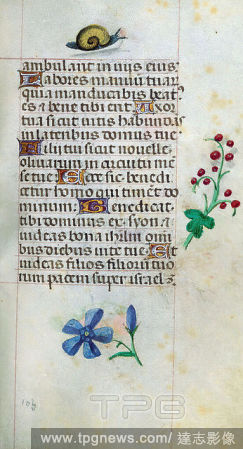 ambulant in viis eius.
Labores manuū tuar
quia manducabis beat
es & bene tibi erit. Uxor
tua sicut vitis habundās
in lateribus domus tue.
Filii tui sicut nouelle
oliuarum in circuitu mē
se tue. Ecce sic bendi
cetur homo qui timet do
minum. Benedicat
tibi dominus ex syon &
uideas bona ihrlm omī
bus diebus uite tue. Et
uideas filios filiorū tuo
rum pacem super israel.
TPG
www.tpgnews.com/達志影像